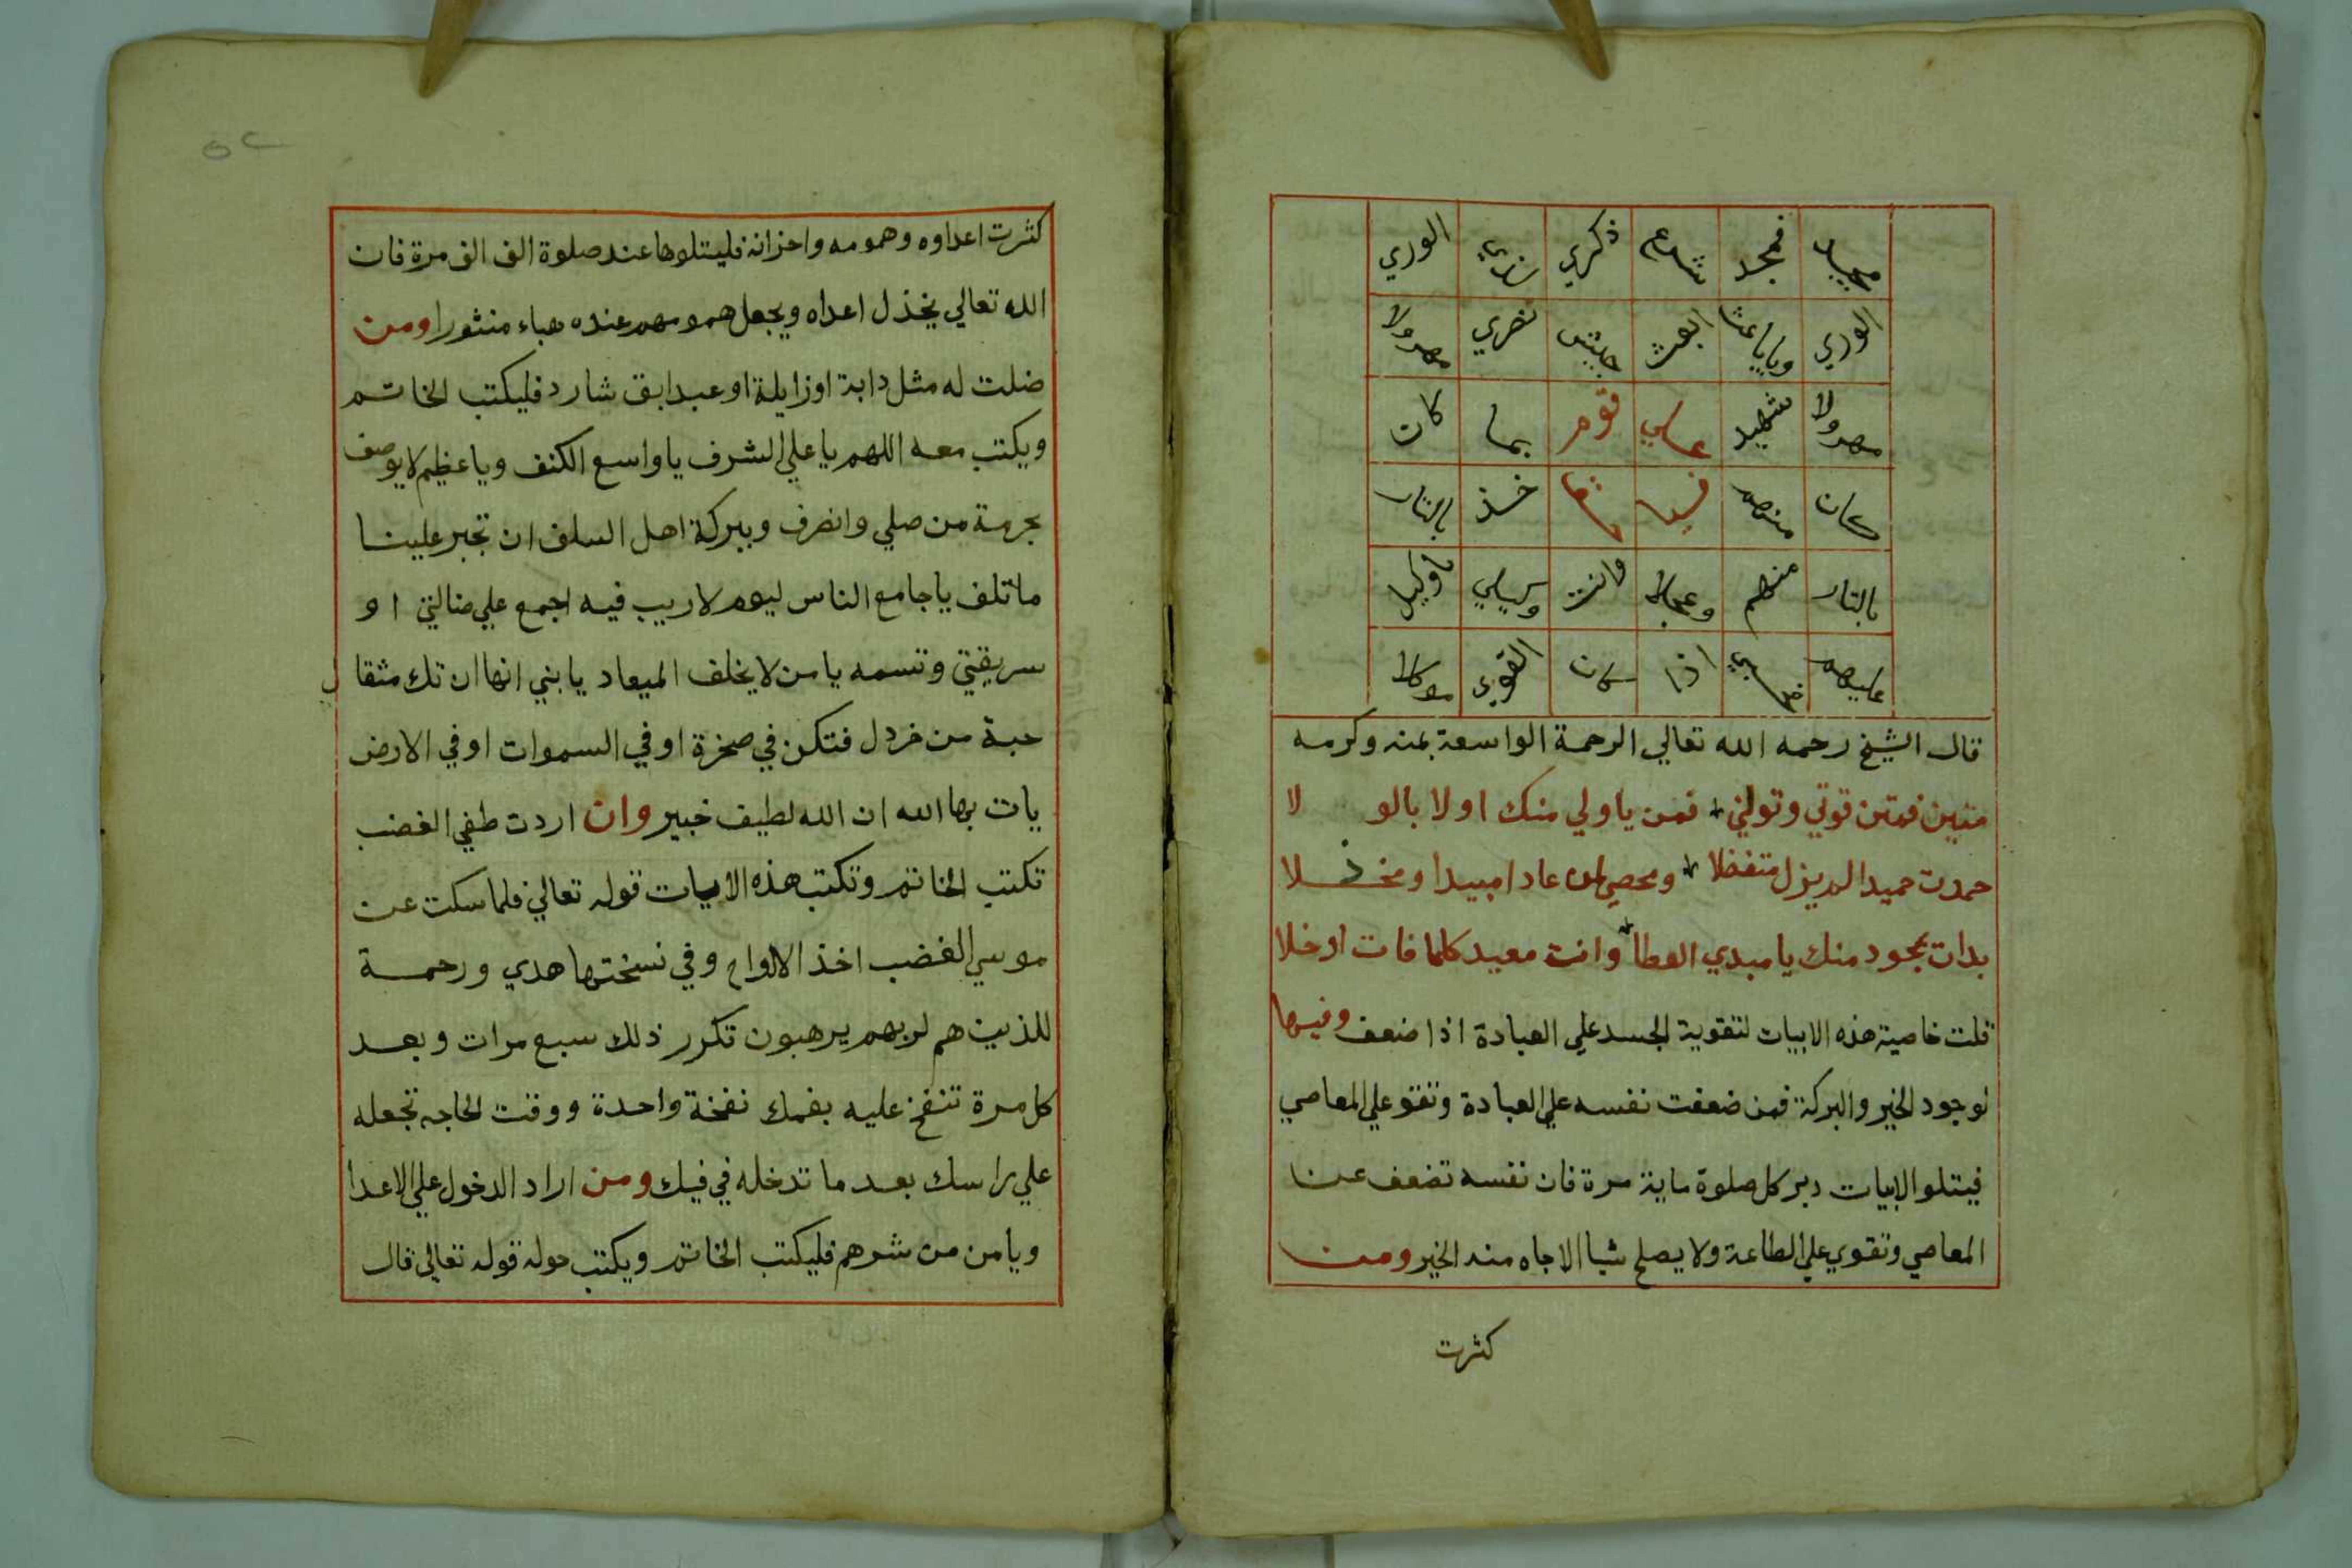 مجيد فمجد شارع ذكري الوري
الوري ويا باعثا ابعث جيش نصري مهرولا
مهرولا شهيد علي قوم بما كان
كان منهم فيا خذ بالنار
بالنار منهم وعجلا وانت وكيلي
اذا كان القوي موكلا
قال الشيخ رحمه الله تعالي الرحمة الواسعة بمنه وكرمه
متين فمتن قوتي وتولني فمن يا ولي منك اولا بالولا
حمدت حميدا لم يزل متفضلا ومحصي لمن عادا مبيدا ومخذلا
بدات بجود منك يا مبدي العطا وانت معيد كلما فات اوخلا
قلت خاصية هذه الابيات لتقوية الجسد علي العبادة اذا ضعف وفيها
لوجود الخير والبركة فمن ضعفت نفسه علي العبادة وتقو علي المعاصي
فيتلو الابيات دبر كل صلوة ماية مرة فان نفسه تضعف عن
المعاصي وتقوي علي الطاعة ولا يصلح شيا الا جاه منه الخير ومن
كثرت
٥٢
كثرت اعداوه وهمومه واحزانه فليتلوها عند صلوة الف الف مرة فان
الله تعالي يخذل اعداه ويجعل همومهم عنده هباء منثورا ومن
ضلت له مثل دابة اوزايلة او عبد ابق شارد فليكتب الخاتم
ويكتب معه اللهم يا علي الشرف يا واسع الكنف ويا عظيم لا يوصف
بحرمة من صلي وانصرف وببركة اهل السلف ان تجبر علينا
ما تلف يا جامع الناس ليوم لا ريب فيه اجمع علي ضالتي او
سريقتي وتسمه يا من لا يخلف الميعاد يا بني انها ان تك مثقال
حبة من خردل فتكن في صخرة او في السموات او في الارض
يات بها الله ان الله لطيف خبير وان اردت طفي الغضب
تكتب الخاتم وتكتب هذه الابيات قوله تعالي فلما سكت عن
موسي الغضب اخذ الالواح وفي نسختها هدي ورحمة
للذين هم لربهم يرهبون تكرر ذلك سبع مرات وبعد
كل مرة تنفخ عليه بفمك نفخة واحدة ووقت الحاجه تجعله
علي راسك بعد ما تدخله في فيك ومن اراد الدخول علي الاعدا
ويامن من شرهم فليكتب الخاتم ويكتب حوله قوله تعالي قال